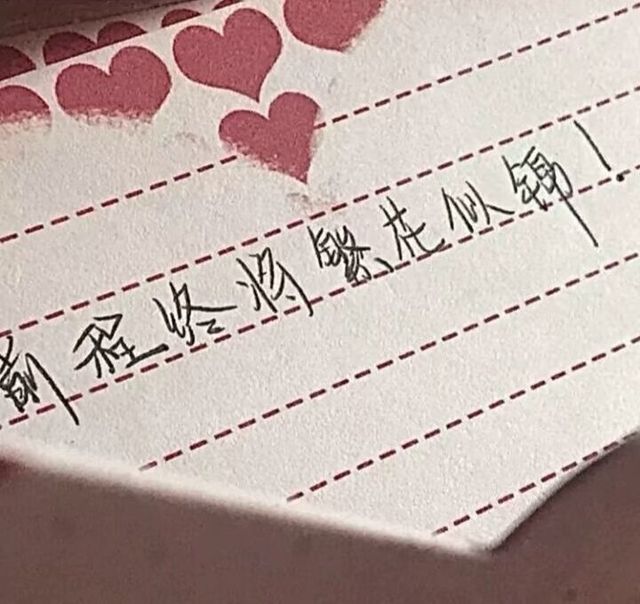 前程终将繁花似锦！